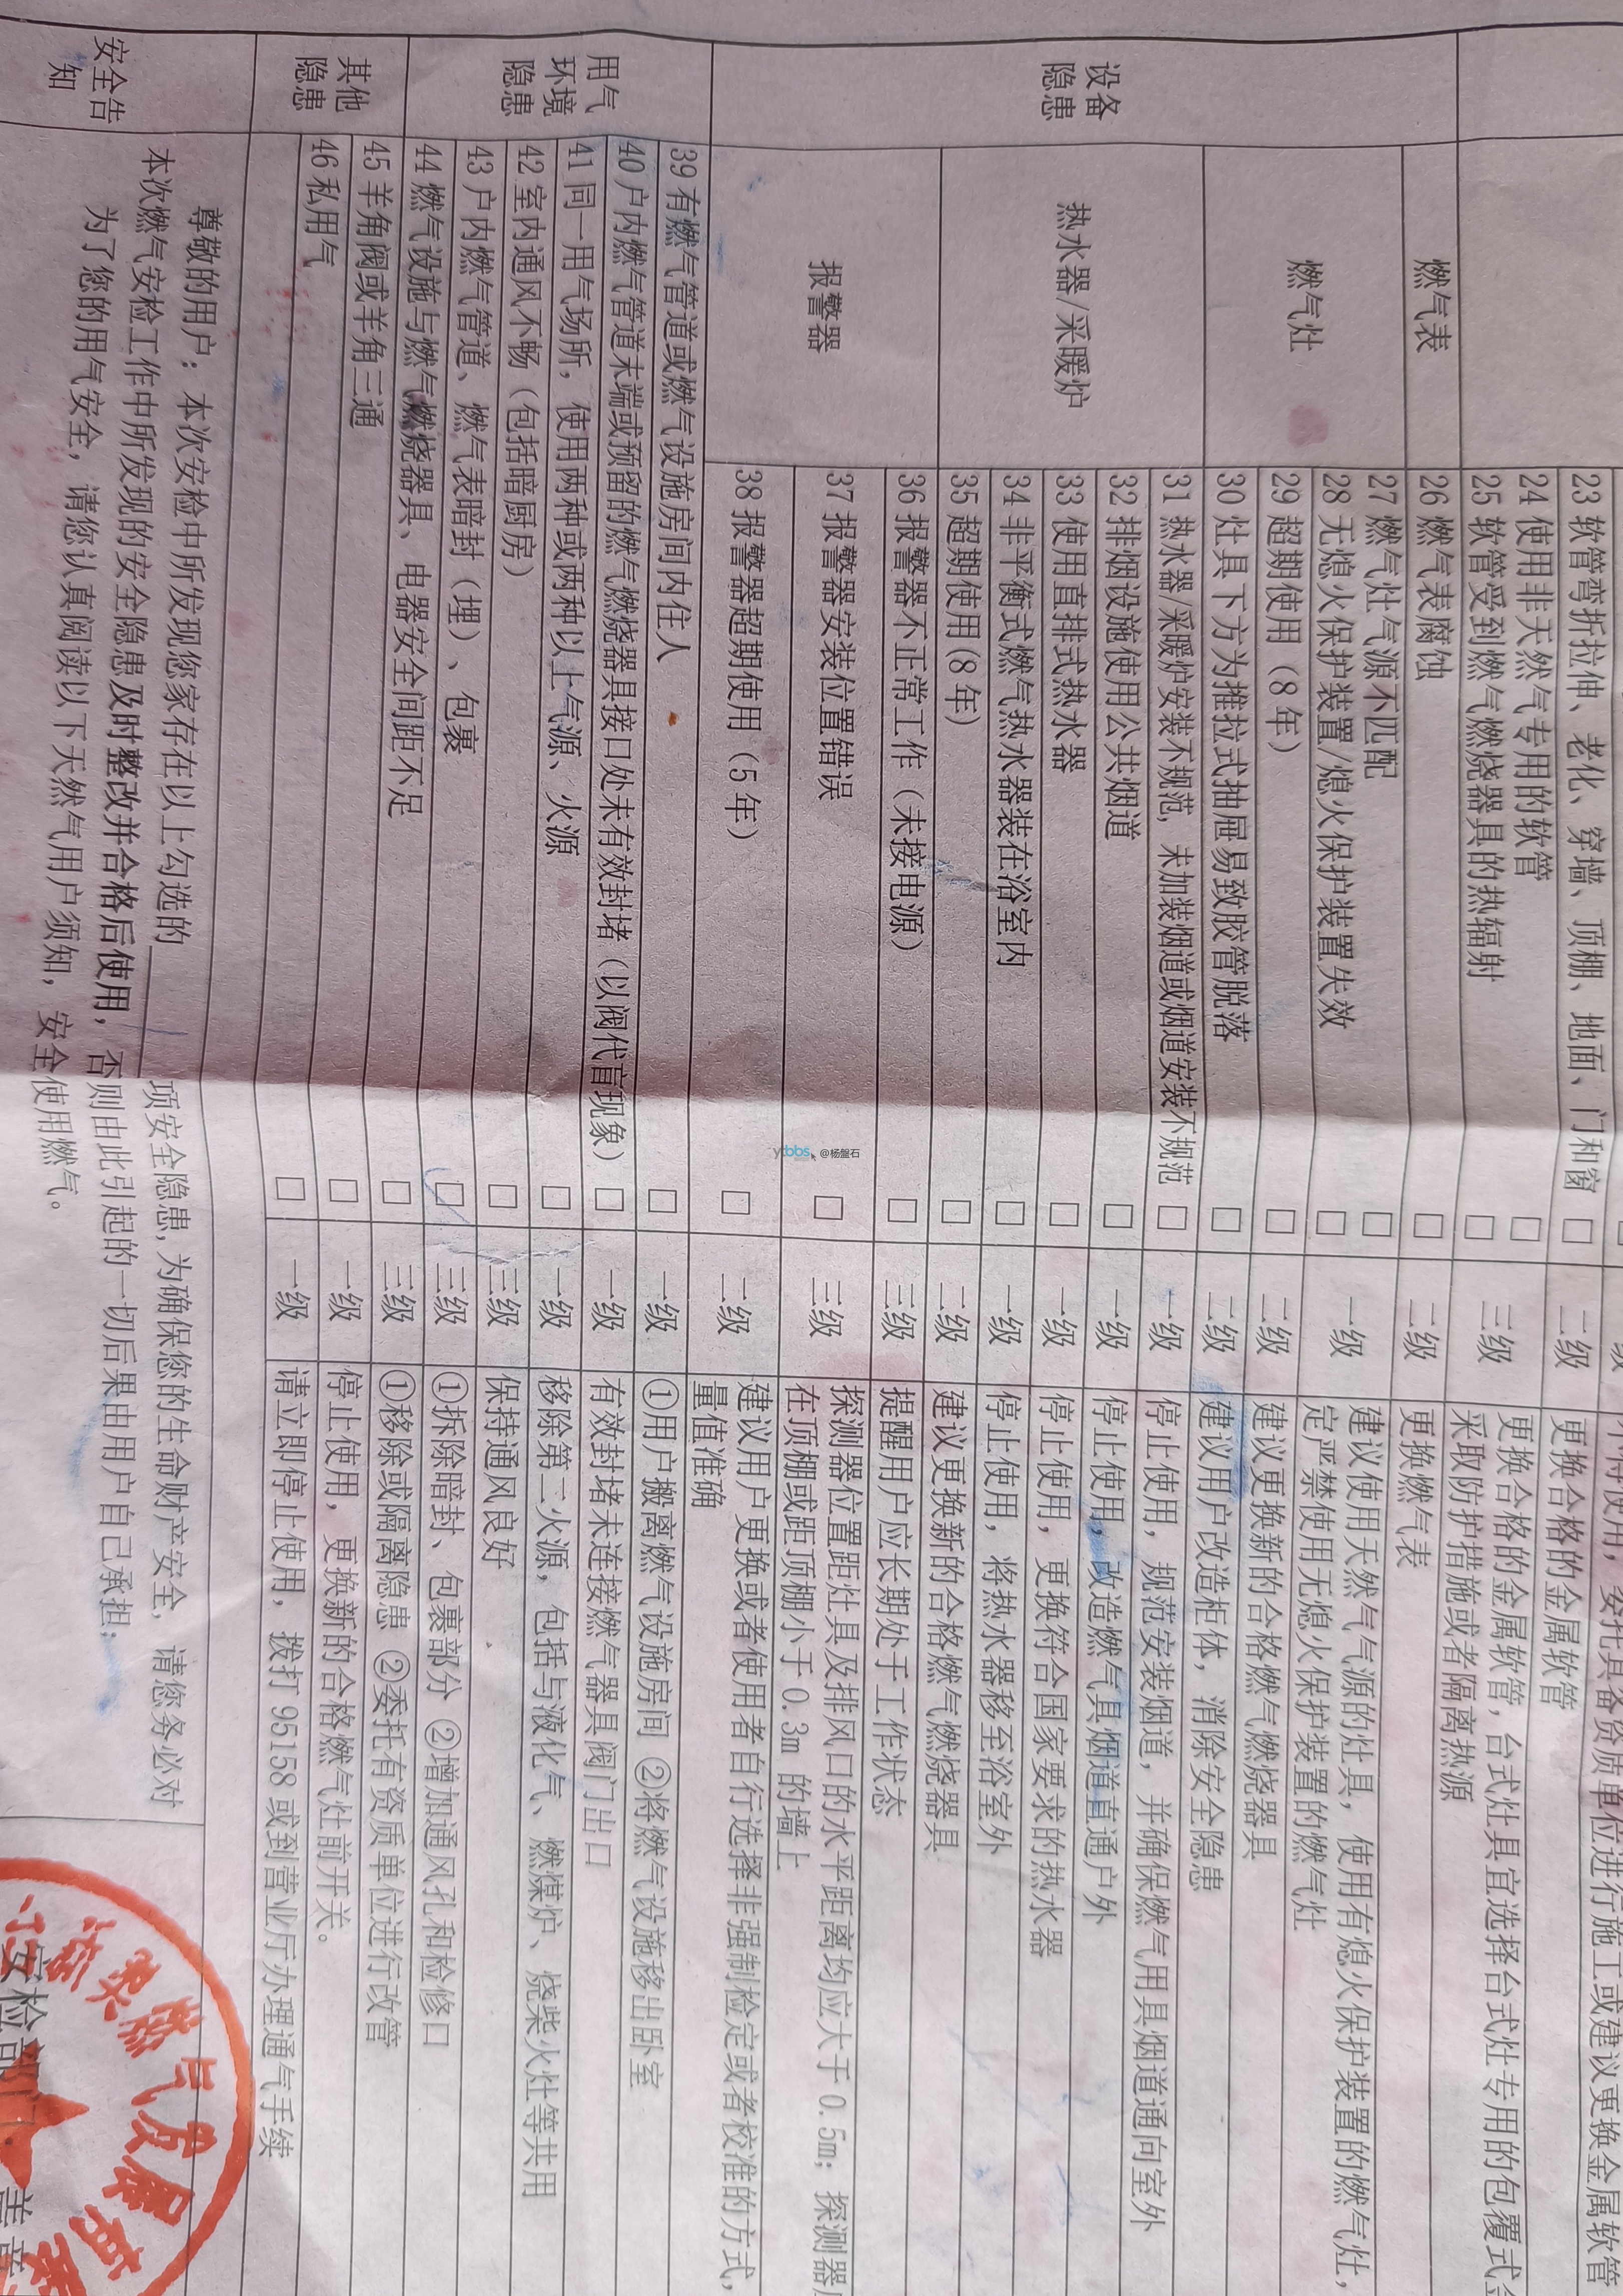 23 软管弯折拉伸、老化、穿墙、顶棚、地面、门和窗 □ 二级 更换合格的金属软管
24 使用非天然气专用的软管 □
25 软管受到燃气燃烧器具的热辐射 □ 三级 更换合格的金属软管，台式灶具宜选择台式灶专用的包覆式
采取防护措施或者隔离热源
燃气表 26 燃气表腐蚀 □ 二级 更换燃气表
设备隐患
燃气灶
27 燃气灶气源不匹配 □
28 无熄火保护装置/熄火保护装置失效 □ 一级 建议使用天然气气源的灶具，使用有熄火保护装置的燃气灶，
定严禁使用无熄火保护装置的燃气灶
29 超期使用（8 年） □ 二级 建议更换新的合格燃气燃烧器具
30 灶具下方为推拉式抽屉易致胶管脱落 □ 二级 建议用户改造柜体，消除安全隐患
热水器/采暖炉
31 热水器/采暖炉安装不规范，未加装烟道或烟道安装不规范 □ 一级 停止使用，规范安装烟道，并确保燃气用具烟道通向室外
32 排烟设施使用公共烟道 □ 一级 停止使用，改造燃气具烟道直通户外
33 使用直排式热水器 □ 一级 停止使用，更换符合国家要求的热水器
34 非平衡式燃气热水器装在浴室内 □ 一级 停止使用，将热水器移至浴室外
35 超期使用(8 年) □ 二级 建议更换新的合格燃气燃烧器具
报警器
36 报警器不正常工作（未接电源） □ 三级 提醒用户应长期处于工作状态
37 报警器安装位置错误 □ 三级 探测器位置距灶具及排风口的水平距离均应大于 0.5m；探测器
在顶棚或距顶棚小于 0.3m 的墙上
38 报警器超期使用（5 年） □ 二级 建议用户更换或者使用者自行选择非强制检定或者校准的方式，
量值准确
用气环境隐患
39 有燃气管道或燃气设施房间内住人 □ 一级 ①用户搬离燃气设施房间 ②将燃气设施移出卧室
40 户内燃气管道末端或预留的燃气燃烧器具接口处未有效封堵（以阀代盲现象） □ 一级 有效封堵未连接燃气器具阀门出口
41 同一用气场所，使用两种或两种以上气源、火源 □ 一级 移除第二火源，包括与液化气、燃煤炉、烧柴火灶等共用
42 室内通风不畅（包括暗厨房） □ 三级 保持通风良好
43 户内燃气管道、燃气表暗封（埋）、包裹 □ 三级 ①拆除暗封、包裹部分 ②增加通风孔和检修口
44 燃气设施与燃气燃烧器具、电器安全间距不足 □ 三级 ①移除或隔离隐患 ②委托有资质单位进行改管
其他隐患
45 羊角阀或羊角三通 □ 一级 停止使用，更换新的合格燃气灶前开关。
46 私用气 □ 一级 请立即停止使用，拨打 95158 或到营业厅办理通气手续
安全告知
尊敬的用户：本次安检中所发现您家存在以上勾选的 项安全隐患,为确保您的生命财产安全，请您务必对
本次燃气安检工作中所发现的安全隐患及时整改并合格后使用，否则由此引起的一切后果由用户自己承担；
为了您的用气安全，请您认真阅读以下天然气用户须知，安全使用燃气。
安检部门
盖章
燃气发展
ytbbs @杨盤石